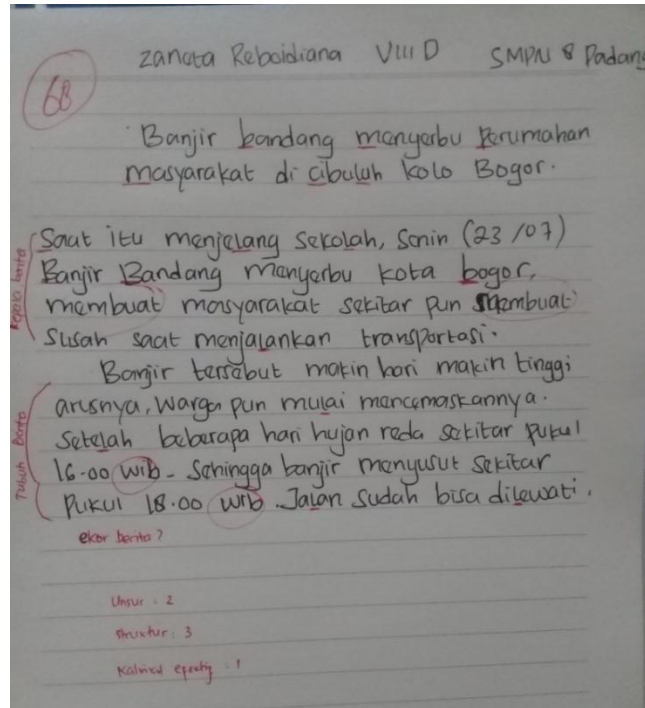 Zanata Reboidiana VIII D SMPN 8 Padang
68
Banjir bandang menyerbu Perumahan
masyarakat di cibuluh koto Bogor.
Saat itu menjelang sekolah, Senin (23/07)
Banjir Bandang menyerbu kota bogor,
membuat masyarakat sekitar pun membuat
susah saat menjalankan transportasi.
Banjir tersebut makin hari makin tinggi
arusnya, Warga pun mulai mencemaskannya.
Setelah beberapa hari hujan reda sekitar pukul
16.00 wib. Sehingga banjir menyusut sekitar
Pukul 18.00 wib. Jalan sudah bisa dilewati.
Kepala berita
Tubuh Berita
ekor berita?
Unsur : 2
Struktur : 3
Kalimat efektif : 1